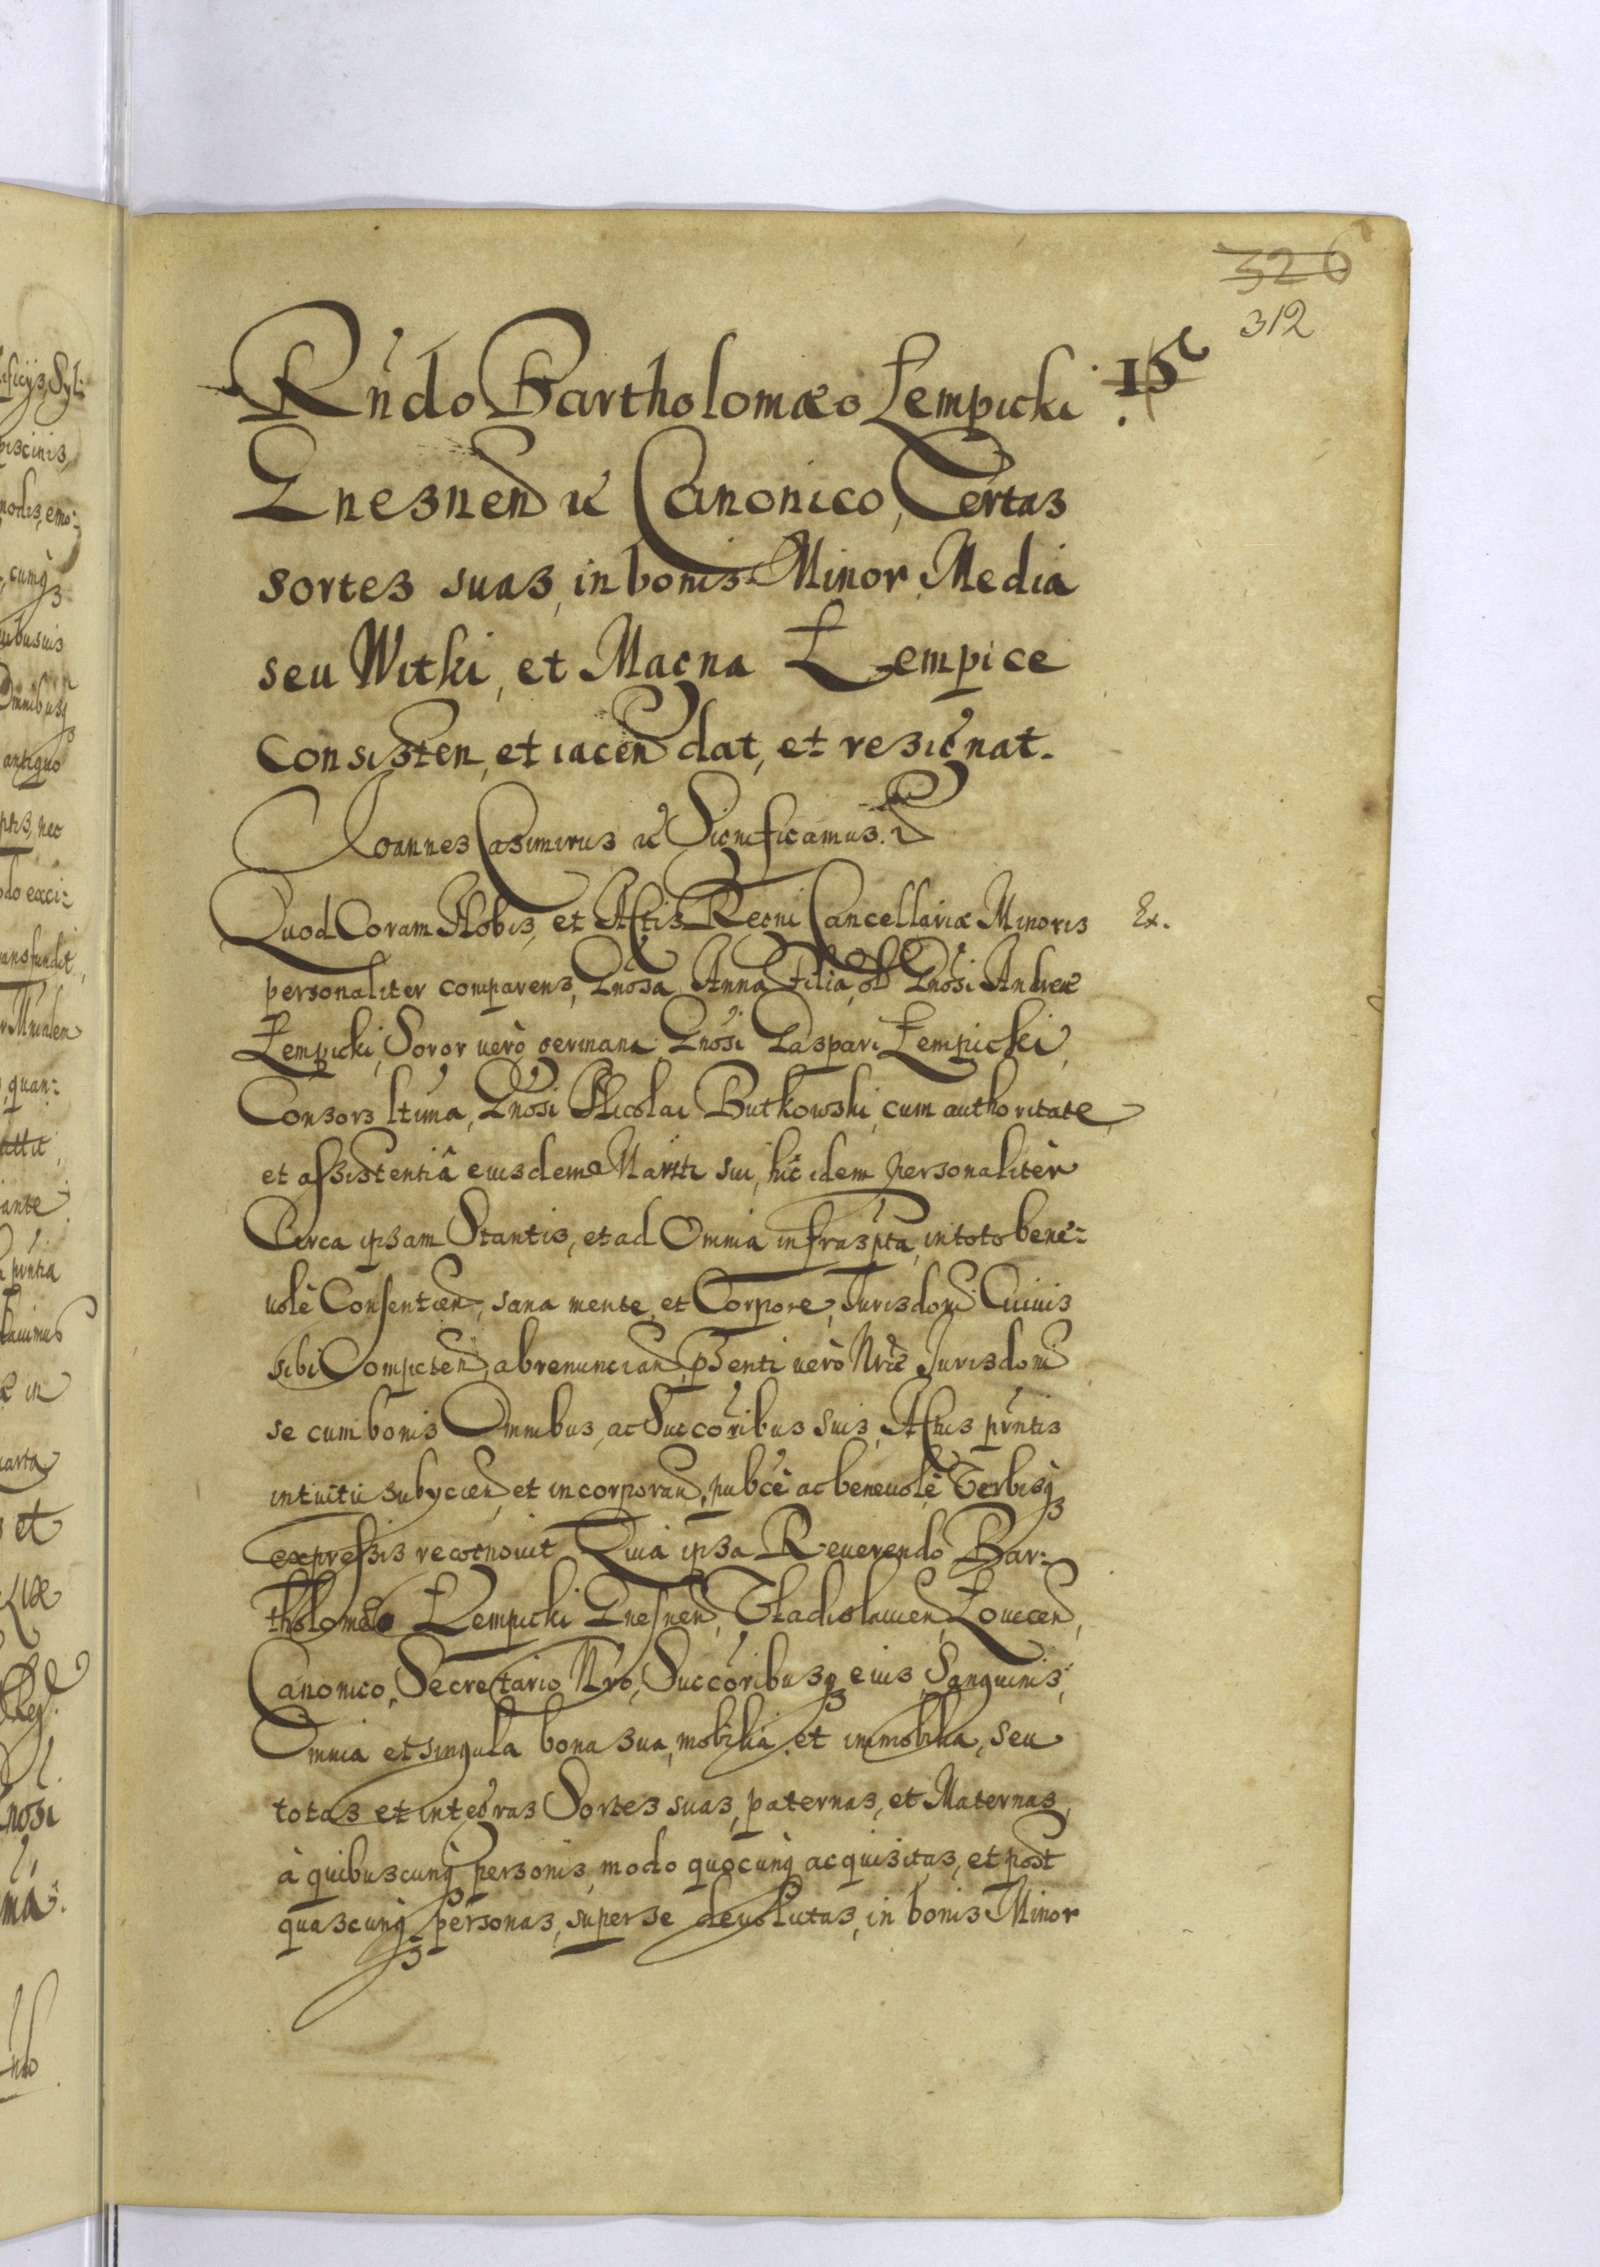 326
312
Rñdo Bartholomæo Łempicki
15
Gnesnen̄ ec Canonico, Certas
sortes suas, in bonis Minor, Media
seu Witki, et Magna Łempice
consisten, et iacen̄ dat, et resignat.
Joannes Casimirus ec Significamus.
Quod Coram Nobis, et Actis Regni Cancellariæ Minoris
Ex.
personaliter comparens, Gnosa Anna Filia, ol Gnosi Andreæ
Łempicki, Soror verò germana Gnosi Gaspari Łempicki,
Consors ltima, Gnosi Nicolai Butkowski, cum authoritate
et assistentiâ eiusdem Mariti sui, hic idem personalitèr
Circa ipsam Stantis, et ad Omnia infraspta, in toto bene-
uolè Consentien̄, sana mente, et Corpore, Jurisdoni Cuiuis
sibi Competen̄, abrenuncian̄, psenti verò Nræ Jurisdoni
se cum bonis Omnibus, ac Succoribus suis, Actus pntis
intuitu subycien̄, et incorporan̄, pubcè ac beneuolè Verbisq
expressis recognouit Quia ipsa Reuerendo Bar-
tholomæo Łempicki Gnesnen̄, Vladislauien̄, Łouicen̄,
Canonico, Secretario Nro, Succoribusq eius, Sanguinis,
Omnia et singula bona sua, mobilia et immobilia, seu
totas et integras Sortes suas, paternas, et Maternas,
à quibuscunq personis, modo quocunq acquisitas, et post
quascunq personas, super se deuolutas, in bonis Minor